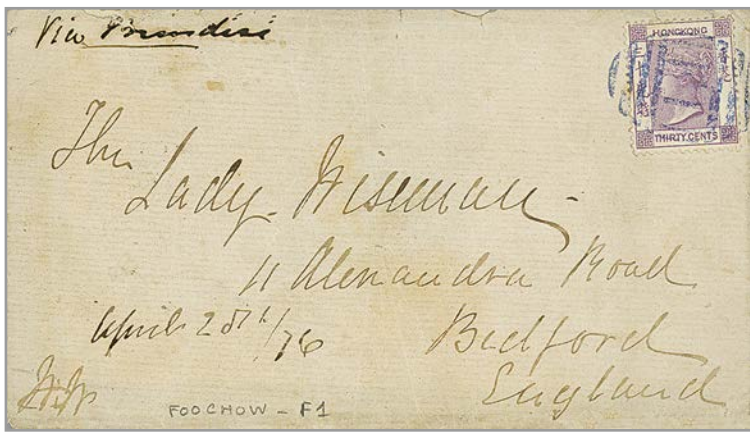 Via Brindisi
HONGKONG
THIRTY CENTS
The
Lady Wiseman
11 Alexandra Road
April /76
Bedford
England
FOOCHOW - F1